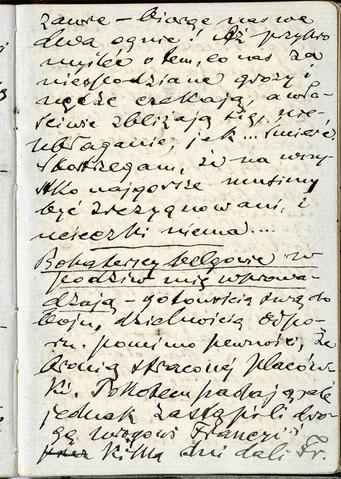 zawsze – biorąc nas we
dwa ognie! Aż przykro
myśleć o tem, co nas za
niespodziane grozy i
nędze czekają, a wła-
ściwie zbliżają się, nie-
ubłaganie, jak... śmierć.
Spostrzegam, że na wszy-
stko najgorsze musimy
być zrezygnowani, i
ucieczki niema....
Bohaterscy belgowie w
podziw mię wprowa-
dzają – gotowością swą do
boju, dzielnością odpo-
ru. pomimo pewności, że
bronią straconej placów-
ki. Pokotem padają, ale
jednak zastąpili dro-
gę wrogowi Francji i
kilka dni dali Fr.